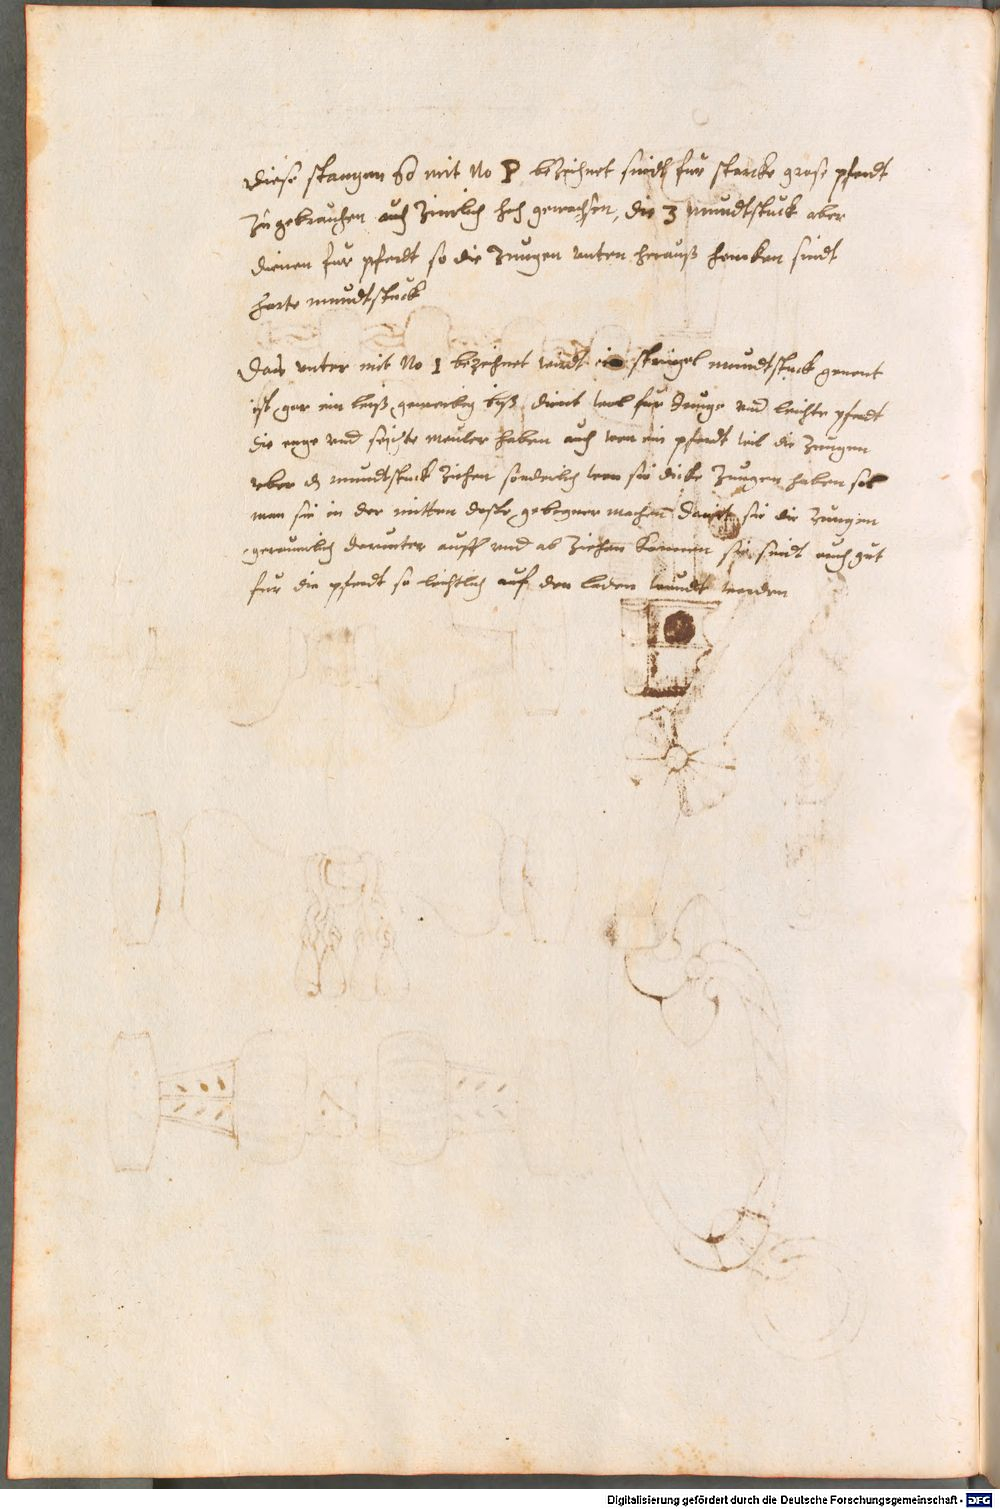 Diese stangen so mit No P bezeichnet sindt fur starcke grose pferdt
zu gebrauchen auch zimlich hoch gewachsen, die 3 mundtstuck aber
dienen fur pferdt so die Zungen unten herauß hencken sindt
harte mundtstuck
Das unter mit No 1 bezeichnet wirdt ein steigel mundtstuck genent
ist gar ein leiß biß dient wol fur Junge und leichte pferdt
die enge und seichte meuler haben auch wen ein pferdt wil die Zungen
uber dz mundtstuck ziehen sonderlich wen sie dicke Zungen haben sol
man sie in der mitten deste gebogner machen damit sie die Zungen
gereumlich darunter auff und ab ziehen konnen sie sindt auch gut
fur die pferdt so leichtlich auf den laden wundt werden
Digitalisierung gefördert durch die Deutsche Forschungsgemeinschaft - DFG